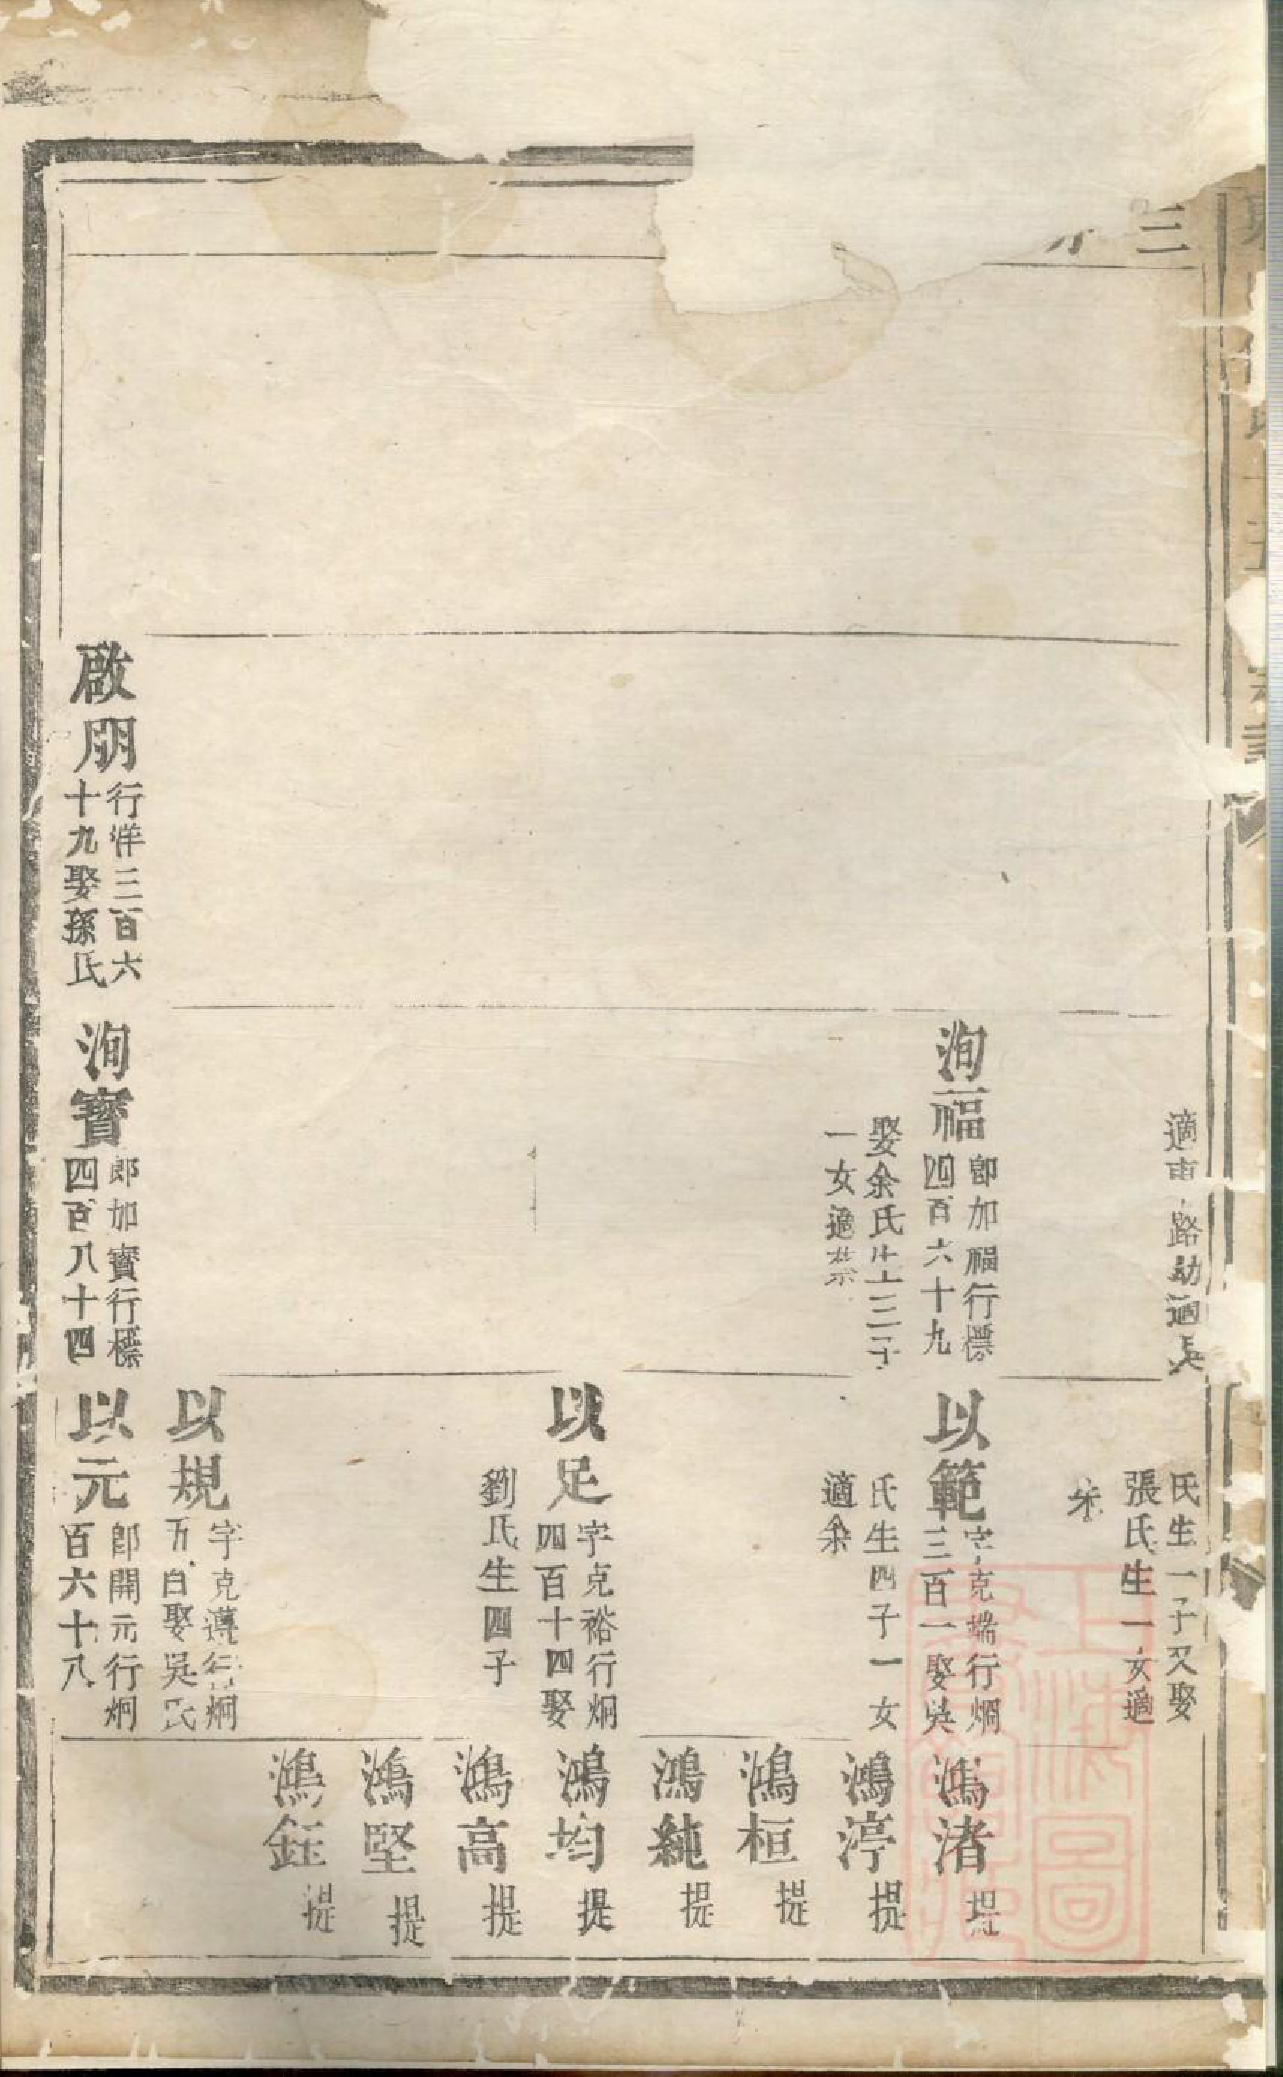 三
適東
路勛適吳
氏生一子又娶
張氏生一女適
朱
洵福
即加福行標
四百六十九
娶余氏生三子
一女適蔡
以範
字克端行炯
三百一娶吳
氏生四子一女
適余
鴻渚 提
鴻渟 提
鴻桓 提
鴻純 提
以足
字克裕行炯
四百十四娶
劉氏生四子
鴻均 提
鴻高 提
鴻堅 提
鴻鈺 提
以規
字克遵行炯
五百娶吳氏
啟朋
行洋三百六
十九娶孫氏
洵寶
郎加寶行標
四百八十四
以元
即開元行炯
百六十八
上海圖書館藏